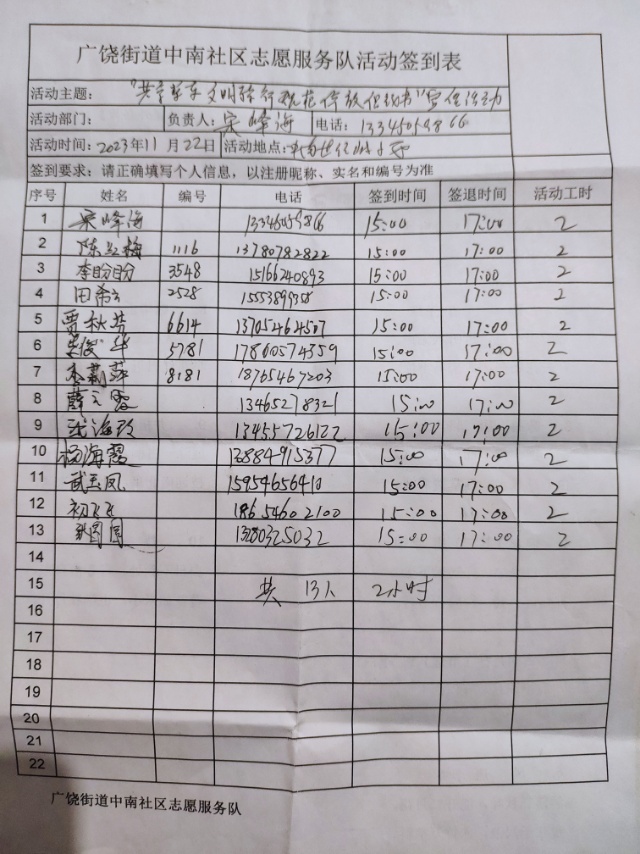 广饶街道中南社区志愿服务队活动签到表
活动主题： 文明 停放 宣传活动
活动部门： 负责人：宋峰海 电话：
活动时间：2023年11月22日 活动地点：
签到要求：请正确填写个人信息，以注册昵称、实名和编号为准
序号 姓名 编号 电话 签到时间 签退时间 活动工时
1 宋峰海 15:00 17:00 2
2 陈红梅 1116 13780782822 15:00 17:00 2
3 李盼盼 3548 15166240893 15:00 17:00 2
4 2528 15:00 17:00 2
5 贾秋芳 6614 13705464507 15:00 17:00 2
6 俊华 5781 17860574359 15:00 17:00 2
7 莉萍 8181 18765467203 15:00 17:00 2
8 薛 霞 13465278321 15:00 17:00 2
9 海 15:00 17:00 2
10 杨海霞 13884915377 15:00 17:00 2
11 武玉凤 15954656410 15:00 17:00 2
12 初飞飞 18654602100 15:00 17:00 2
13 15:00 17:00 2
14
15 共 13人 2小时
16
17
18
19
20
21
22
广饶街道中南社区志愿服务队